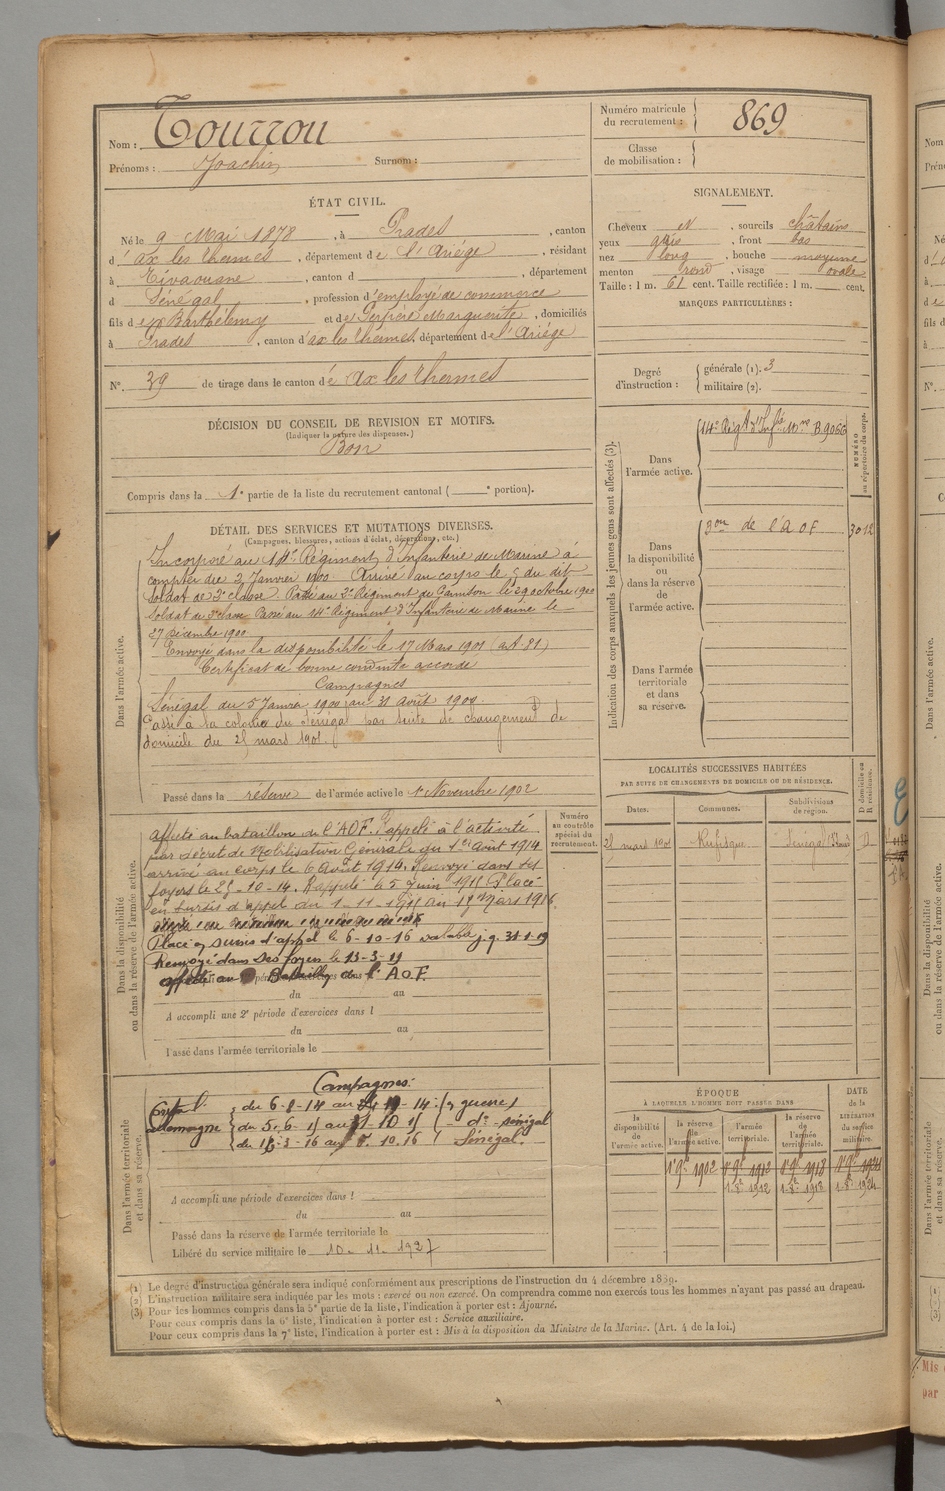 Nom : Tourrou
Prénoms : Joachin Surnom :
Numéro matricule du recrutement : 869
Classe de mobilisation :
ÉTAT CIVIL.
Né le 9 Mai 1878, à Prades, canton
d'ax les thermes, département de l'Ariége, résidant
à Tivaouane, canton d, département
d Sénégal, profession d'employé de commerce
fils de Barthélemy et de Marguerite, domiciliés
à Prades, canton d'ax les thermes, département de l'Ariége
N°. 39 de tirage dans le canton d'e Ax les thermes
SIGNALEMENT.
Cheveux et, sourcils châtains
yeux gris, front bas
nez long, bouche moyenne
menton rond, visage ovale
Taille : 1 m. 61 cent. Taille rectifiée : 1 m. cent.
MARQUES PARTICULIÈRES :
Degré d'instruction : générale (1). 3
militaire (2).
DÉCISION DU CONSEIL DE REVISION ET MOTIFS.
(Indiquer la nature des dispenses.)
Bon
Compris dans la 1e partie de la liste du recrutement cantonal ( e portion).
Indication des corps auxquels les jeunes gens sont affectés (3).
NUMÉRO au répertoire du corps.
Dans l'armée active.
14e Régt d'Infie Mne
Dans la disponibilité ou dans la réserve de l'armée active.
Bon de l'AOF 3012
Dans l'armée territoriale et dans sa réserve.
DÉTAIL DES SERVICES ET MUTATIONS DIVERSES.
(Campagnes, blessures, actions d'éclat, décorations, etc.)
Dans l'armée active.
Incorporé au 14e Régiment d'Infanterie de Marine à
compter du 2 Janvier 1900. Arrivé au corps le 5 du dit
soldat de 2e classe. Passé au Régiment de le 29 octobre 1900
soldat de 2e classe Passé au 14e Régiment d'Infanterie de Marine le
27 Décembre 1900
Envoyé dans la disponibilité le 17 Mars 1901 (art. 21)
Certificat de bonne conduite accordé
Campagnes
Sénégal du 5 Janvier 1900 au 31 août 1900
Passé à la colonie du Sénégal par suite de changement de
domicile du 25 mars 1901.
Passé dans la réserve de l'armée active le 1 Novembre 1902
LOCALITÉS SUCCESSIVES HABITÉES
PAR SUITE DE CHANGEMENTS DE DOMICILE OU DE RÉSIDENCE.
Dates. Communes. Subdivisions de région. D domicile ou R résidence.
25 mars 1901 Rufisque Sénégal D
Numéro au contrôle spécial du recrutement.
Dans la disponibilité ou dans la réserve de l'armée active.
affecté au bataillon de l'AOF. Rappelé à l'activité
par décret de Mobilisation Générale du 1er Août 1914.
arrivé au corps le 6 Août 1914. Renvoyé dans ses
foyers le 25-10-14. Rappelé le 5 juin 1915 Placé
en sursis d'appel du 1-11-1915 au 15 Mars 1916.
Placé en sursis d'appel le 6-10-16 valable jq. 31-1-19
Renvoyé dans ses foyers le 13-3-19
affecté au Bataillon de l'AOF.
du au
A accompli une 2e période d'exercices dans l
du au
Passé dans l'armée territoriale le
Dans l'armée territoriale et dans sa réserve.
Campagnes :
Contre l' allemagne
du 6-8-14 au -14 : (guerre)
du 5-6-15 au 10 15 - do Sénégal
de 3-16 au 10.16 Sénégal.
A accompli une période d'exercices dans l
du au
Passé dans la réserve de l'armée territoriale le
Libéré du service militaire le 10-11-1927
ÉPOQUE
À LAQUELLE L'HOMME DOIT PASSER DANS
DATE de la LIBÉRATION du service militaire.
la disponibilité de l'armée active. la réserve de l'armée active. l'armée territoriale. la réserve de l'armée territoriale.
1902 1912 1918 1924
1912 1918 1924
(1) Le degré d'instruction générale sera indiqué conformément aux prescriptions de l'instruction du 4 décembre 1889.
(2) L'instruction militaire sera indiquée par les mots : exercé ou non exercé. On comprendra comme non exercés tous les hommes n'ayant pas passé au drapeau.
(3) Pour les hommes compris dans la 5e partie de la liste, l'indication à porter est : Ajourné.
Pour ceux compris dans la 6e liste, l'indication à porter est : Service auxiliaire.
Pour ceux compris dans la 7e liste, l'indication à porter est : Mis à la disposition du Ministre de la Marine. (Art. 4 de la loi.)